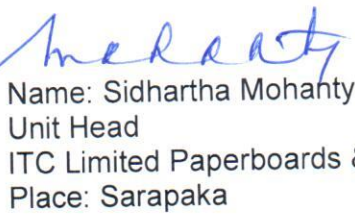 Name: Sidhartha Mohanty
Unit Head
ITC Limited Paperboards &
Place: Sarapaka